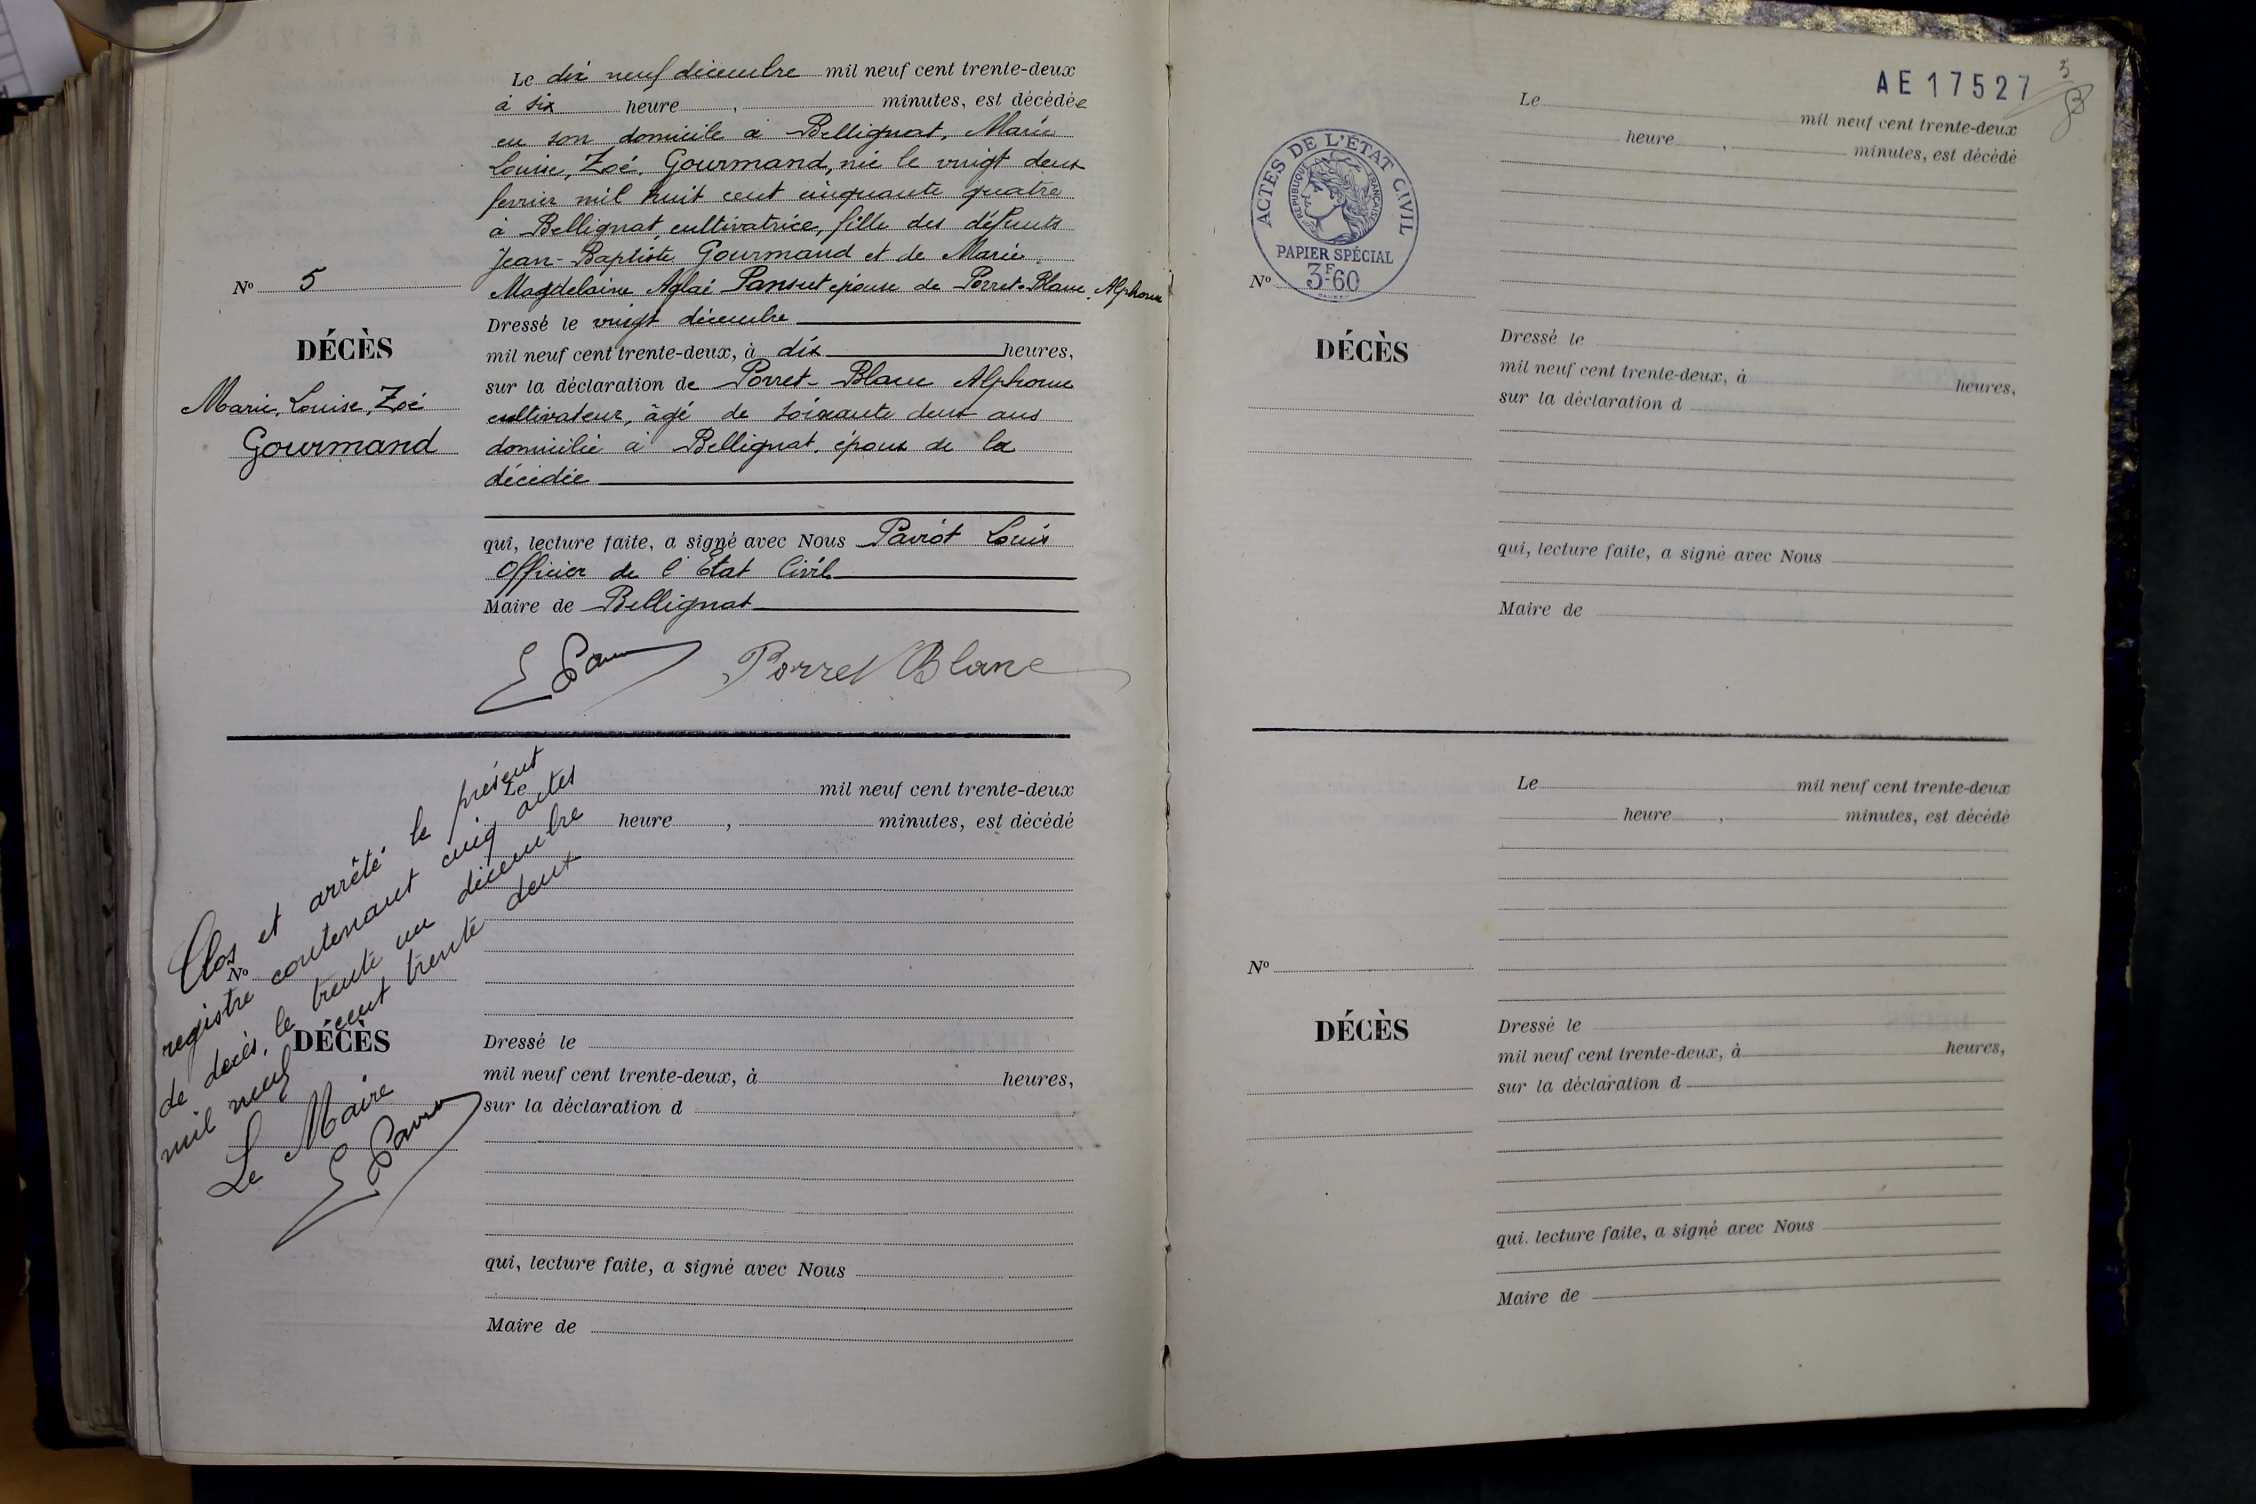 Le dix neuf décembre mil neuf cent trente-deux
à six heure , minutes, est décédée
en son domicile à Bellignat, Marie
Louise, Zoé, Gourmand, née le vingt deux
fevrier mil huit cent cinquante quatre
à Bellignat, cultivatrice, fille des défunts
Jean-Baptiste Gourmand et de Marie
Magdelaine Aglaé Pansut épouse de Porret-Blanc, Alphonse
Nº 5
DÉCÈS
Marie, Louise, Zoé
Gourmand
Dressé le vingt décembre
mil neuf cent trente-deux, à dix heures,
sur la déclaration de Porret-Blanc Alphonse
cultivateur, âgé de soixante deux ans
domicilié à Bellignat, époux de la
décédée
qui, lecture faite, a signé avec Nous Pariot Louis
Officier de l'Etat Civil
Maire de Bellignat
Porret Blanc
Le mil neuf cent trente-deux
heure , minutes, est décédé
Clos et arrêté le présent
registre contenant cinq actes
de decès, le trente un décembre
mil neuf cent trente deux
Le Maire
Nº
DÉCÈS
Dressé le
mil neuf cent trente-deux, à heures,
sur la déclaration d
qui, lecture faite, a signé avec Nous
Maire de
AE17527
3
Le mil neuf cent trente-deux
heure , minutes, est décédé
ACTES DE L'ÉTAT CIVIL
RÉPUBLIQUE FRANÇAISE
PAPIER SPÉCIAL
3F60
Nº
DÉCÈS
Dressé le
mil neuf cent trente-deux, à heures,
sur la déclaration d
qui, lecture faite, a signé avec Nous
Maire de
Le mil neuf cent trente-deux
heure , minutes, est décédé
Nº
DÉCÈS
Dressé le
mil neuf cent trente-deux, à heures,
sur la déclaration d
qui. lecture faite, a signé avec Nous
Maire de